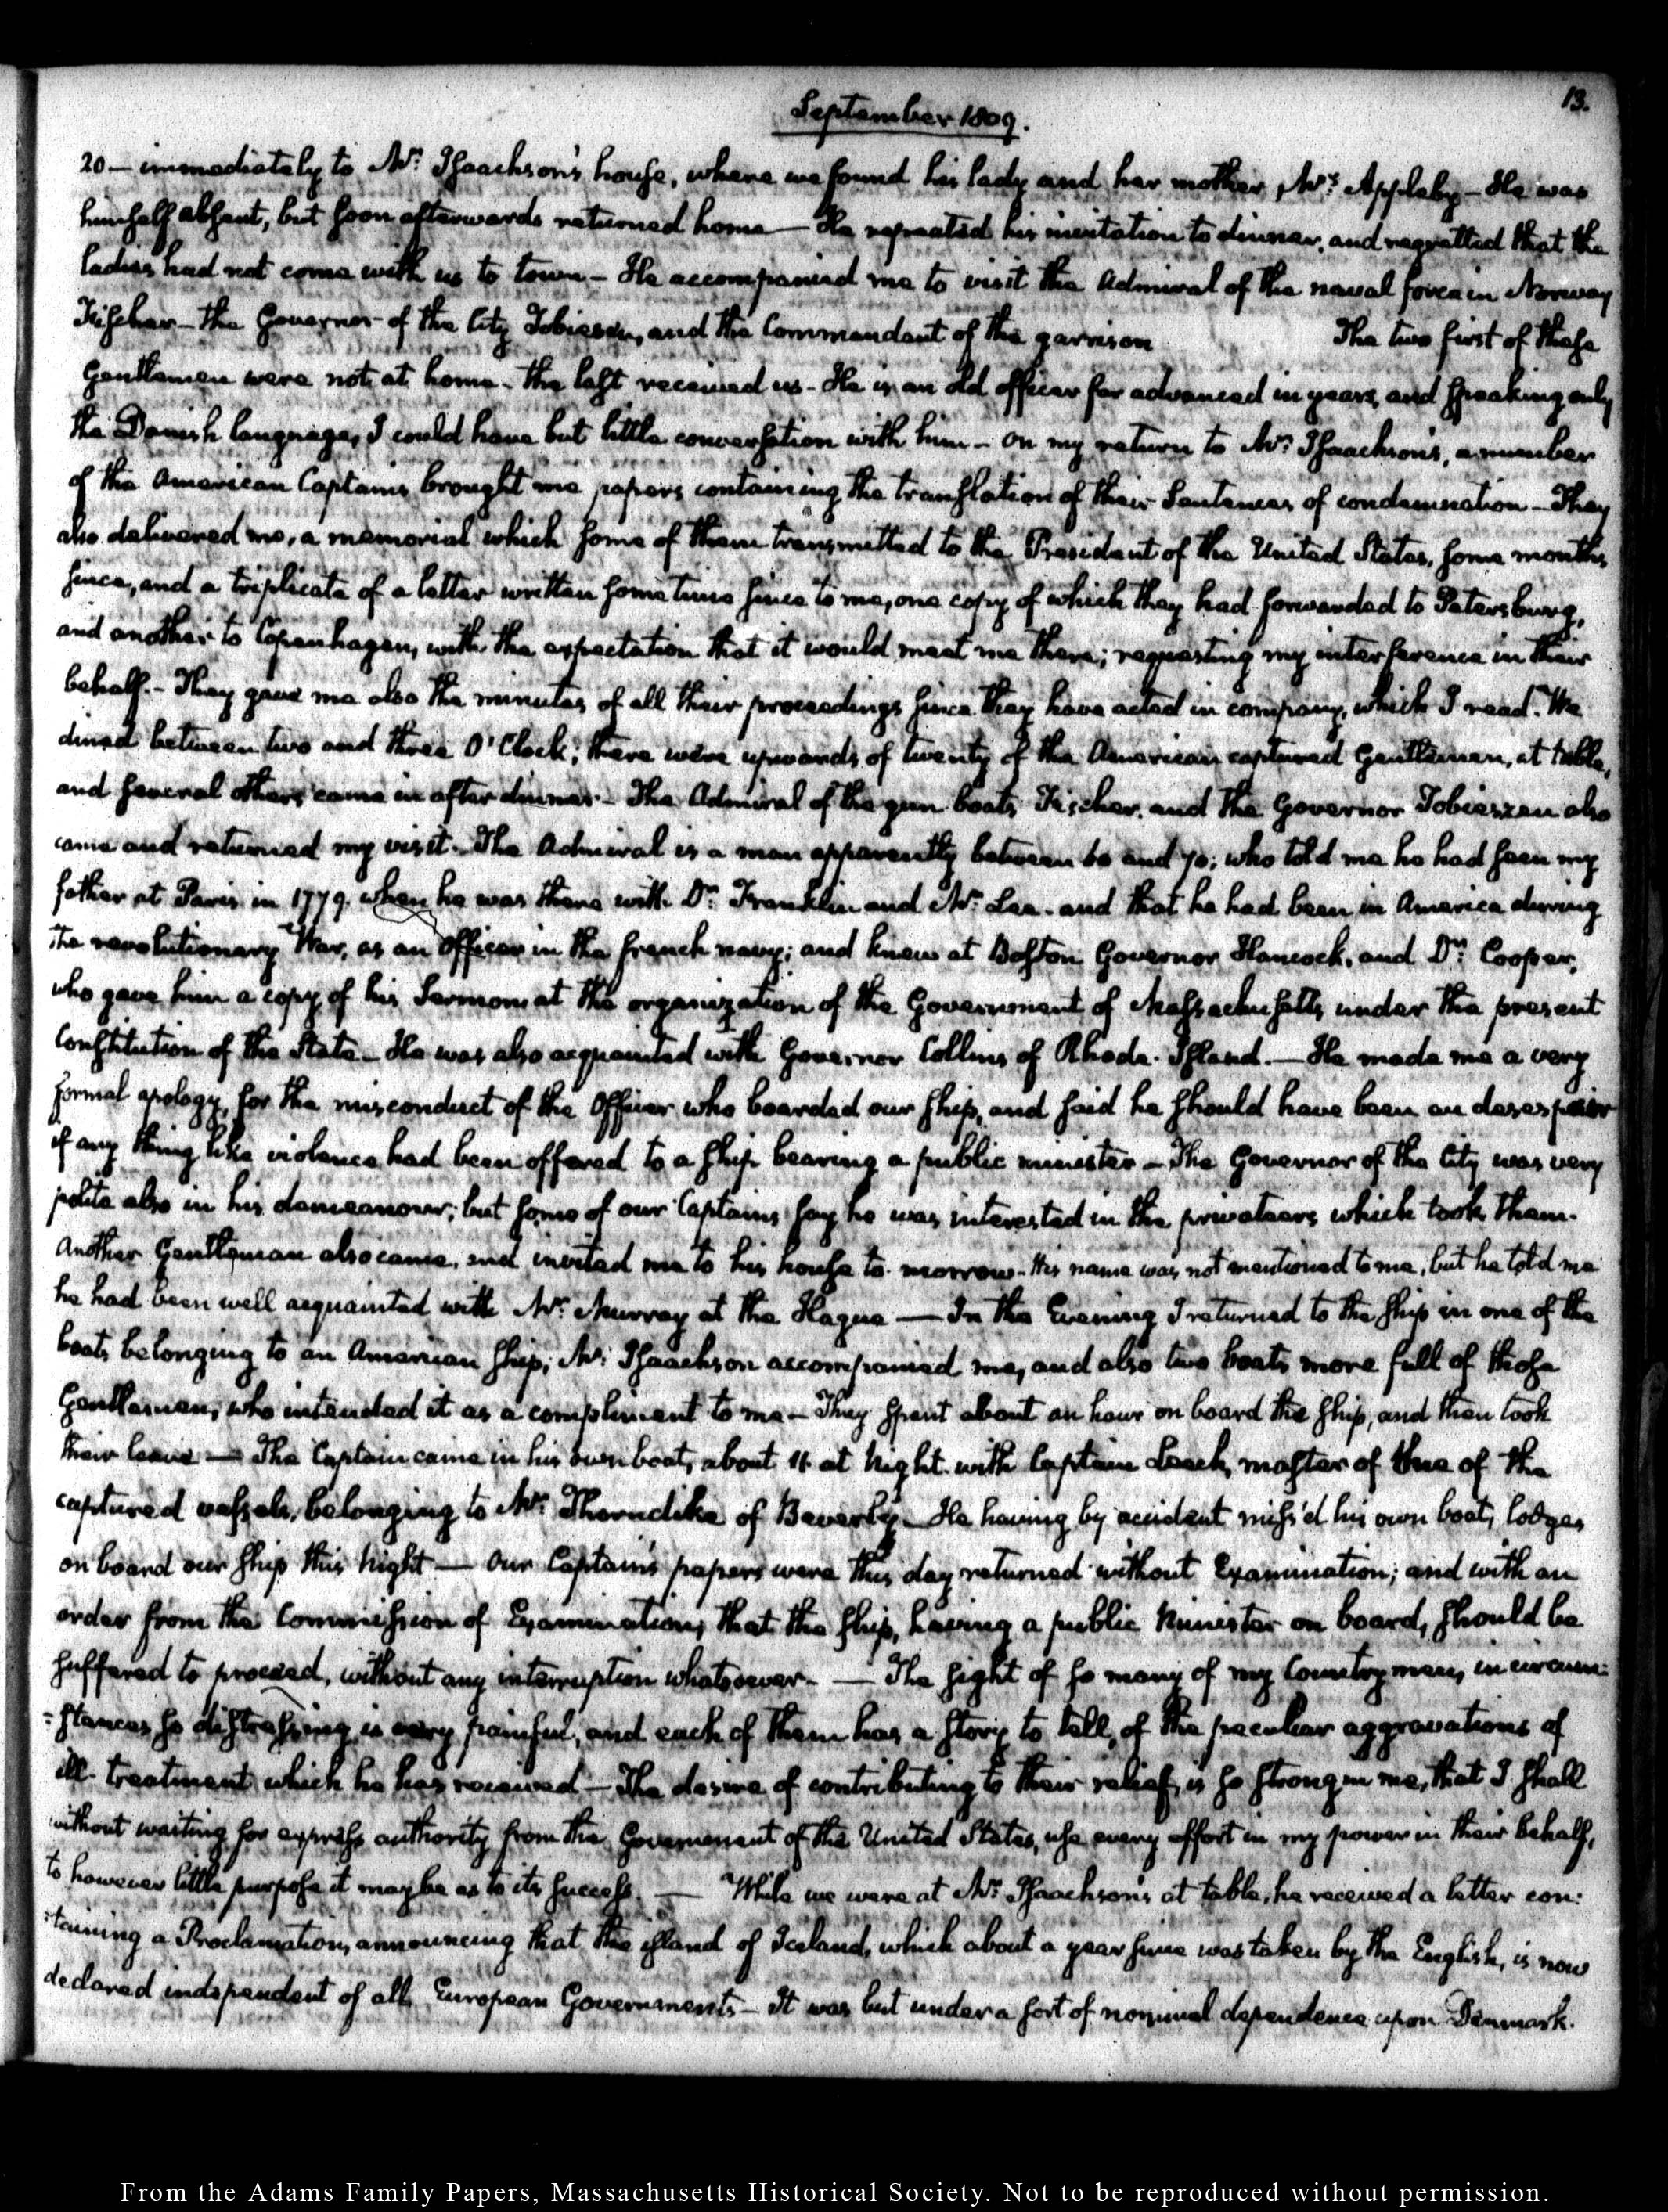 13.
September 1809.
20 — immediately to Mr: Isaachson's house, where we found his lady and her mother, Mrs: Appleby — He was
himself absent, but soon afterwards returned home — He repeated his invitation to dinner, and regretted that the
ladies had not come with us to town — He accompanied me to visit the Admiral of the naval force in Norway
Fischer — the Governor of the City Tobiesen, and the Commandant of the garrison The two first of these
Gentlemen were not at home — the last received us — He is an old officer far advanced in years, and speaking only
the Danish language, I could have but little conversation with him — On my return to Mr: Isaachson's, a number
of the American Captains brought me papers containing the translation of their Sentences of condemnation — They
also delivered me, a memorial which some of them transmitted to the President of the United States, some months
since, and a triplicate of a letter written sometime since to me, one copy of which they had forwarded to Petersburg,
and another to Copenhagen, with the expectation that it would meet me there; requesting my interference in their
behalf. — They gave me also the minutes of all their proceedings since they have acted in company, which I read. We
dined between two and three O'Clock; there were upwards of twenty of the American captured Gentlemen, at table,
and several others came in after dinner. — The Admiral of the gun boats Fischer, and the Governor Tobieszen also
came and returned my visit. The Admiral is a man apparently between 60 and 70; who told me he had seen my
father at Paris in 1779. when he was there with Dr: Franklin and Mr: Lee. and that he had been in America during
the revolutionary War, as an Officer in the french navy; and knew at Boston Governor Hancock, and Dr: Cooper,
who gave him a copy of his Sermon at the organization of the Government of Massachusetts under the present
Constitution of the State — He was also acquainted with Governor Collins of Rhode-Island. — He made me a very
formal apology, for the misconduct of the Officer who boarded our ship, and said he should have been au desespoir
if any thing like violence had been offered to a ship bearing a public minister — The Governor of the City was very
polite also in his demeanour; but some of our Captains say he was interested in the privateers which took them.
Another Gentleman also came, and invited me to his house to-morrow — His name was not mentioned to me, but he told me
he had been well acquainted with Mr: Murray at the Hague — In the Evening I returned to the ship in one of the
boats belonging to an American ship; Mr: Isaachson accompanied me, and also two boats more full of those
Gentlemen, who intended it as a compliment to me — They spent about an hour on board the ship, and then took
their leave — The Captain came in his own boat, about 11 at Night. with Captain Leech, master of one of the
captured vessels, belonging to Mr: Thorndike of Beverly — He having by accident miss'd his own boat, lodges
on board our ship this Night — Our Captain's papers were this day returned without Examination; and with an
order from the Commission of Examination, that the ship, having a public Minister on board, should be
suffered to proceed, without any interruption whatsoever. — The sight of so many of my Countrymen, in circum:
:stances so distressing is very painful, and each of them has a story to tell, of the peculiar aggravations of
ill-treatment which he has received — The desire of contributing to their relief, is so strong in me, that I shall
without waiting for express authority from the Government of the United States, use every effort in my power in their behalf,
to however little purpose it may be as to its success. — While we were at Mr: Isaachson's at table, he received a letter con:
:taining a Proclamation, announcing that the island of Iceland, which about a year since was taken by the English, is now
declared independent of all European Governments — It was but under a sort of nominal dependence upon Denmark.
From the Adams Family Papers, Massachusetts Historical Society. Not to be reproduced without permission.